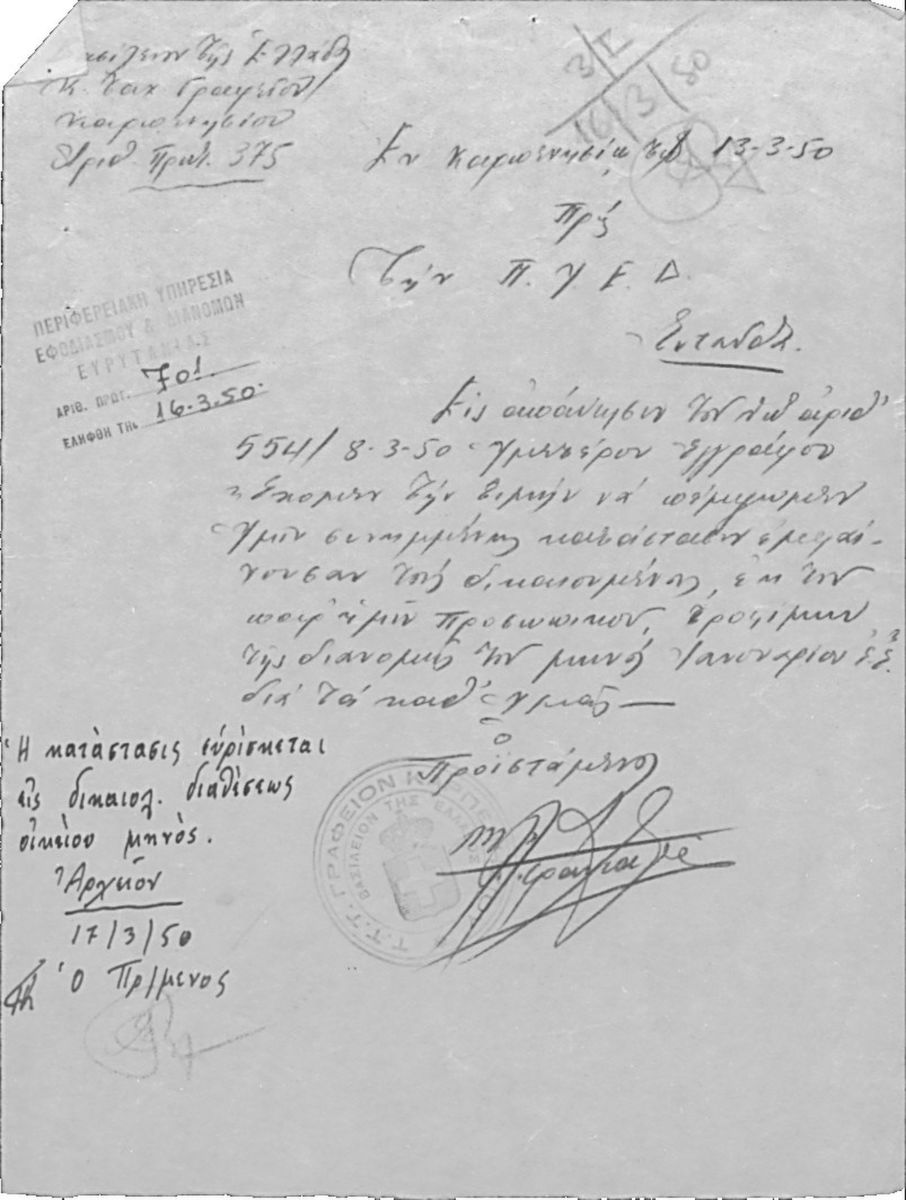 Βασίλειον τῆς Ἑλλάδος
Ταχ Γραφεῖον
Καρπενησίου
Ἀριθ. Πρωτ. 375
3/Γ
16/3/50
Ἐν Καρπενησίῳ τῇ 13-3-50
Πρός
Τὴν Π. Υ. Ε. Δ.
Ἐνταῦθα.
ΠΕΡΙΦΕΡΕΙΑΚΗ ΥΠΗΡΕΣΙΑ
ΕΦΟΔΙΑΣΜΟΥ & ΔΙΑΝΟΜΩΝ
ΕΥΡΥΤΑΝΙΑΣ
ΑΡΙΘ. ΠΡΩΤ. 701
ΕΛΗΦΘΗ ΤΗι 16.3.50.
Εἰς ἀπάντησιν τοῦ ὑπ' ἀριθ'
554/8-3-50 Ὑμετέρου ἐγγράφου
ἔχομεν τὴν τιμὴν νὰ πέμψωμεν
Ὑμῖν συνημμένως κατάστασιν ἐμφαί-
νουσαν τοὺς δικαιουμένους, ἐκ τοῦ
παρ' ἡμῖν προσωπικοῦ, τροφίμων
τῆς διανομῆς τοῦ μηνός Ἰανουαρίου ἐ.ἔ.
διὰ τὰ καθ' Ὑμᾶς —
Ὁ
Προϊστάμενος
Τ.Τ.Τ. ΓΡΑΦΕΙΟΝ ΚΑΡΠΕΝΗΣΙΟΥ
ΒΑΣΙΛΕΙΟΝ ΤΗΣ ΕΛΛΑΔΟΣ
Ἡ κατάστασις εὑρίσκεται
εἰς δικαιολ. διαθέσεως
οἰκείου μηνὸς.
Ἀρχεῖον
17/3/50
Ὁ Πρ/μενος